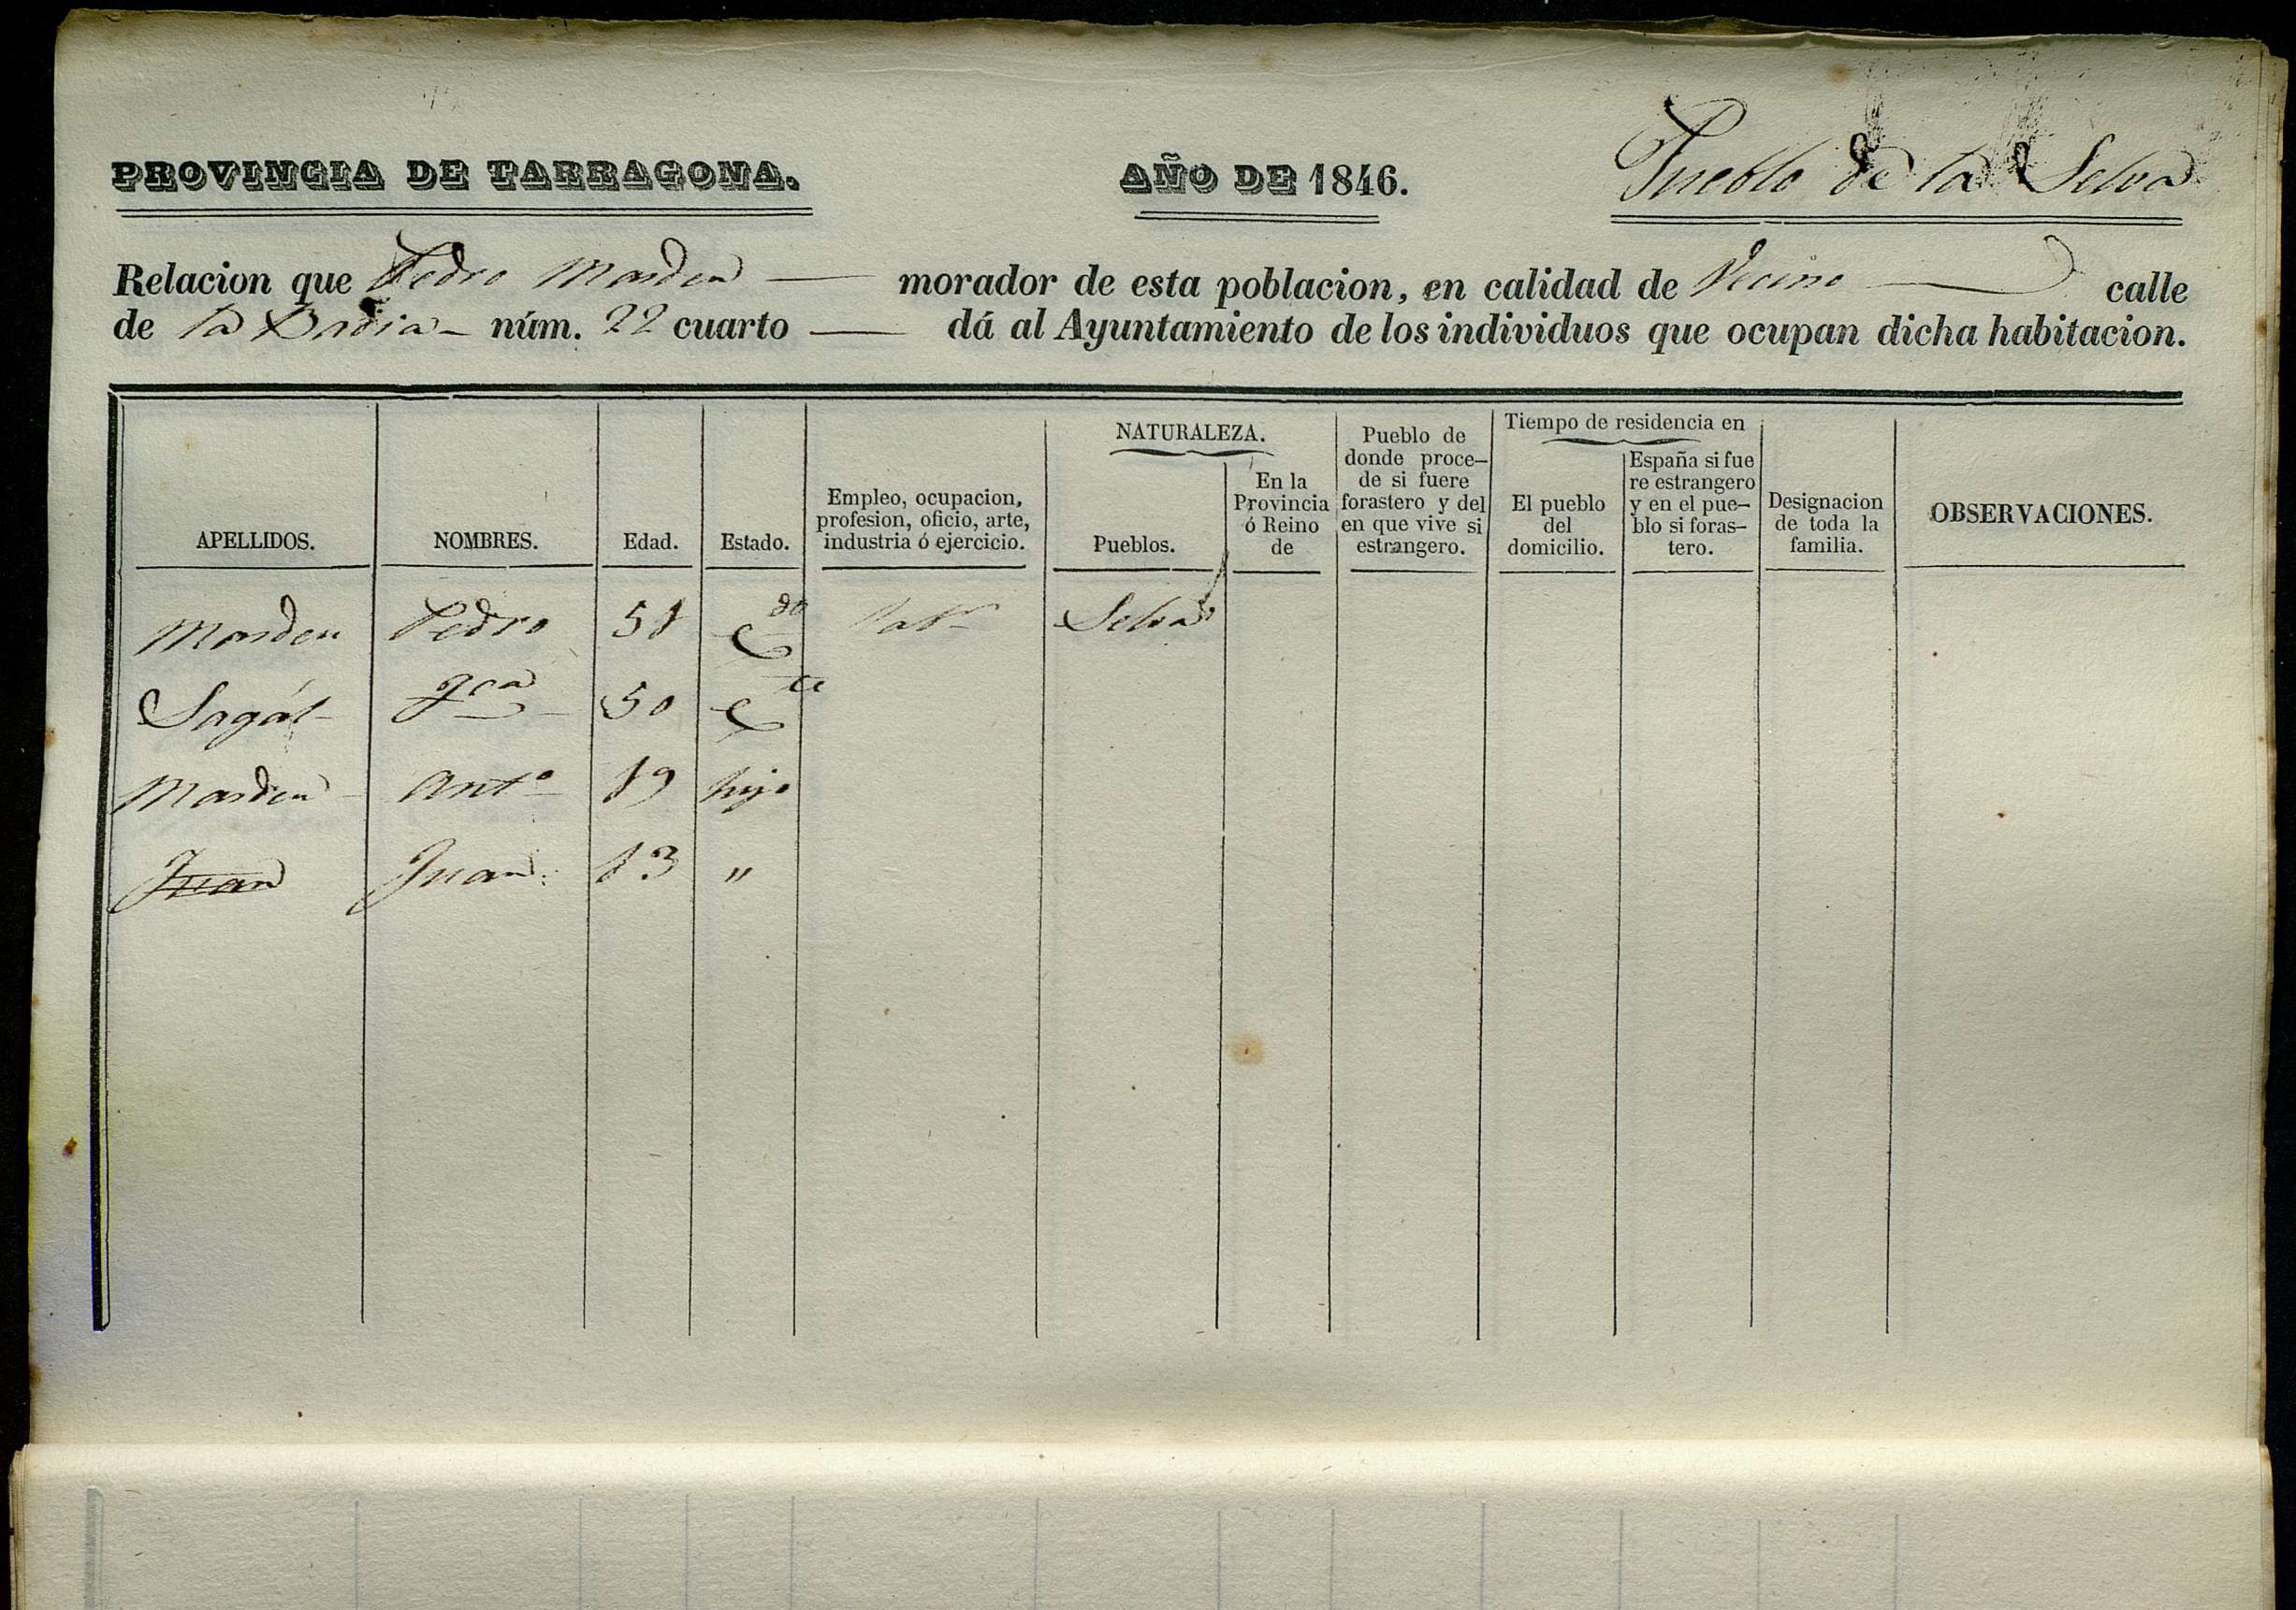 PROVINCIA DE TARRAGONA. AÑO DE 1846. Pueblo de la Selva
Relacion que Pedro Masdeu — morador de esta poblacion, en calidad de Vecino — calle
de la núm. 22 cuarto — dá al Ayuntamiento de los individuos que ocupan dicha habitacion.
APELLIDOS.
NOMBRES.
Edad.
Estado.
Empleo, ocupacion,
profesion, oficio, arte,
industria ó ejercicio.
NATURALEZA.
Pueblos.
En la
Provincia
ó Reino
de
Pueblo de
donde proce-
de si fuere
forastero y del
en que vive si
estrangero.
Tiempo de residencia en
El pueblo
del
domicilio.
España si fue
re estrangero
y en el pue-
blo si foras-
tero.
Designacion
de toda la
familia.
OBSERVACIONES.
Masdeu Pedro 51 Cdo Selva
Sagál Fca 50 Cda
Masdeu Anto 19 hijo
Juan Juan 13 "